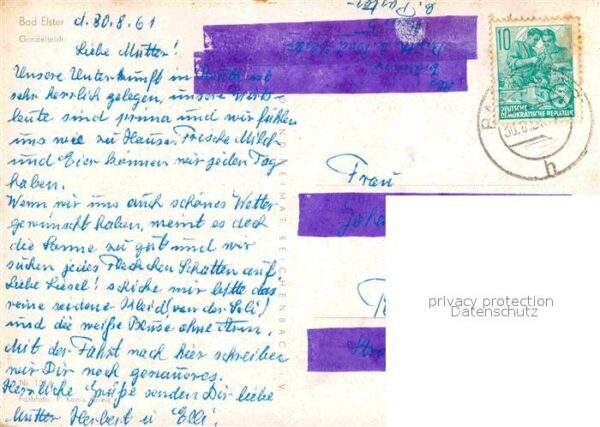 Bad Elster
Gondelteich
d. 30.8.61
Liebe Mutter!
Unsere Unterkunft in ist
sehr herrlich gelegen, unsere Wirts-
leute sind prima und wir fühlen
uns wie zu Hause. Frische Milch
und Eier können wir jeden Tag
haben.
Wenn wir uns auch schönes Wetter
gewünscht haben, meint es doch
die Sonne zu gut und wir
suchen jedes Fleckchen Schatten auf.
Liebe Liesel! schicke mir bitte das
reine seidene Kleid (von der Soli)
und die weiße Bluse ohne Arm.
Mit der Fahrt nach hier schreiben
wir Dir noch genaueres.
Herzliche Grüße senden Dir liebe
Mutter Herbert u. Elli.
HEIMAT REICHENBACH V
10
DEUTSCHE
DEMOKRATISCHE REPUBLIK
h
Frau
privacy protection
Datenschutz